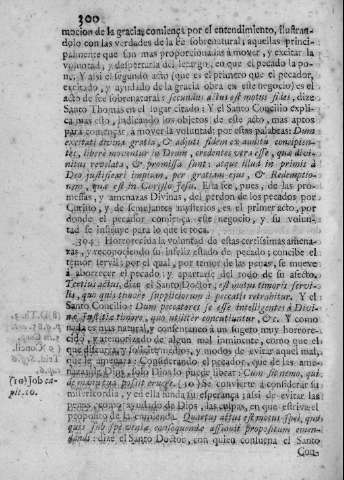 300
mocion de la gracia, comiença por el entendimiento, ilustran-
dolo con las verdades de la Fè sobrenatural; aquellas princi-
palmente que son mas proporcionadas à mover, y excitar la
voluntad, y despertarla del letargo, en que el pecado la po-
ne. Y assi el segundo acto (que es el primero que el pecador,
excitado, y ayudado de la gracia obra en este negocio) es el
acto de fee sobrenatural: secundus actus est motus fidei, dize
Santo Thomàs en el lugar citado: Y el Santo Concilio expli-
ca mas esto, indicando los objetos de este acto, mas aptos
para começar à mover la voluntad: por estas palabras: Dum
excitati divina gratia, & adjuti fidem ex auditu concipien-
tes, liberè moventur in Deum, credentes vera esse, quæ divi-
nitus revelata, & promissa sunt: atque illud in primis à
Deo justificari impium, per gratiam ejus, & Redemptio-
nem, quæ est in Christo Jesu. Esta fee, pues, de las pro-
messas, y amenazas Divinas, del perdon de los pecados por
Christo, y de semejantes mysterios, es el primer acto, por
donde el pecador comiença este negocio, y su volun-
tad se insinue para lo que le toca.
304 Horrorecida la voluntad de estas certissimas amena-
zas, y reconociendo su infeliz estado de pecado; concibe el
temor servil; por el qual, por temor de las penas, se mueve
à aborrecer el pecado; y apartarse del todo de su afecto.
Tertius actus, dize el Santo Doctor, est motus timoris servi-
lis, quo quis timore suppliciorum à peccatis retrahitur. Y el
Santo Concilio: Dum peccatores se esse intelligentes à Divi-
næ justitiæ timore, quo utiliter concutiuntur, &c. Y como
nada es mas natural, y consentaneo à un sugeto muy horroro-
recido, y atemorizado de algun mal inminente, como el que
de discurrir, y solicitar medios, y modos de evitar aquel mal,
que le amenaza: Considerando el pecador, que de las ame-
nazas de Dios, solo Dios lo puede librar: Cum sit nemo, qui
de manu tua possit eruere. (10) Se convierte à considerar su
misericordia, y en ella funda su esperança; assi de evitar las
penas, como ayudado de Dios, las culpas, en que estriva el
proposito de la enmienda. Quartus actus est motus spei, quo
quis sub spe veniæ consequendæ assumit propositum emen-
dandi: dize el Santo Doctor, con quien consuena el Santo
Con-
(10) Job ca-
pit. 10.